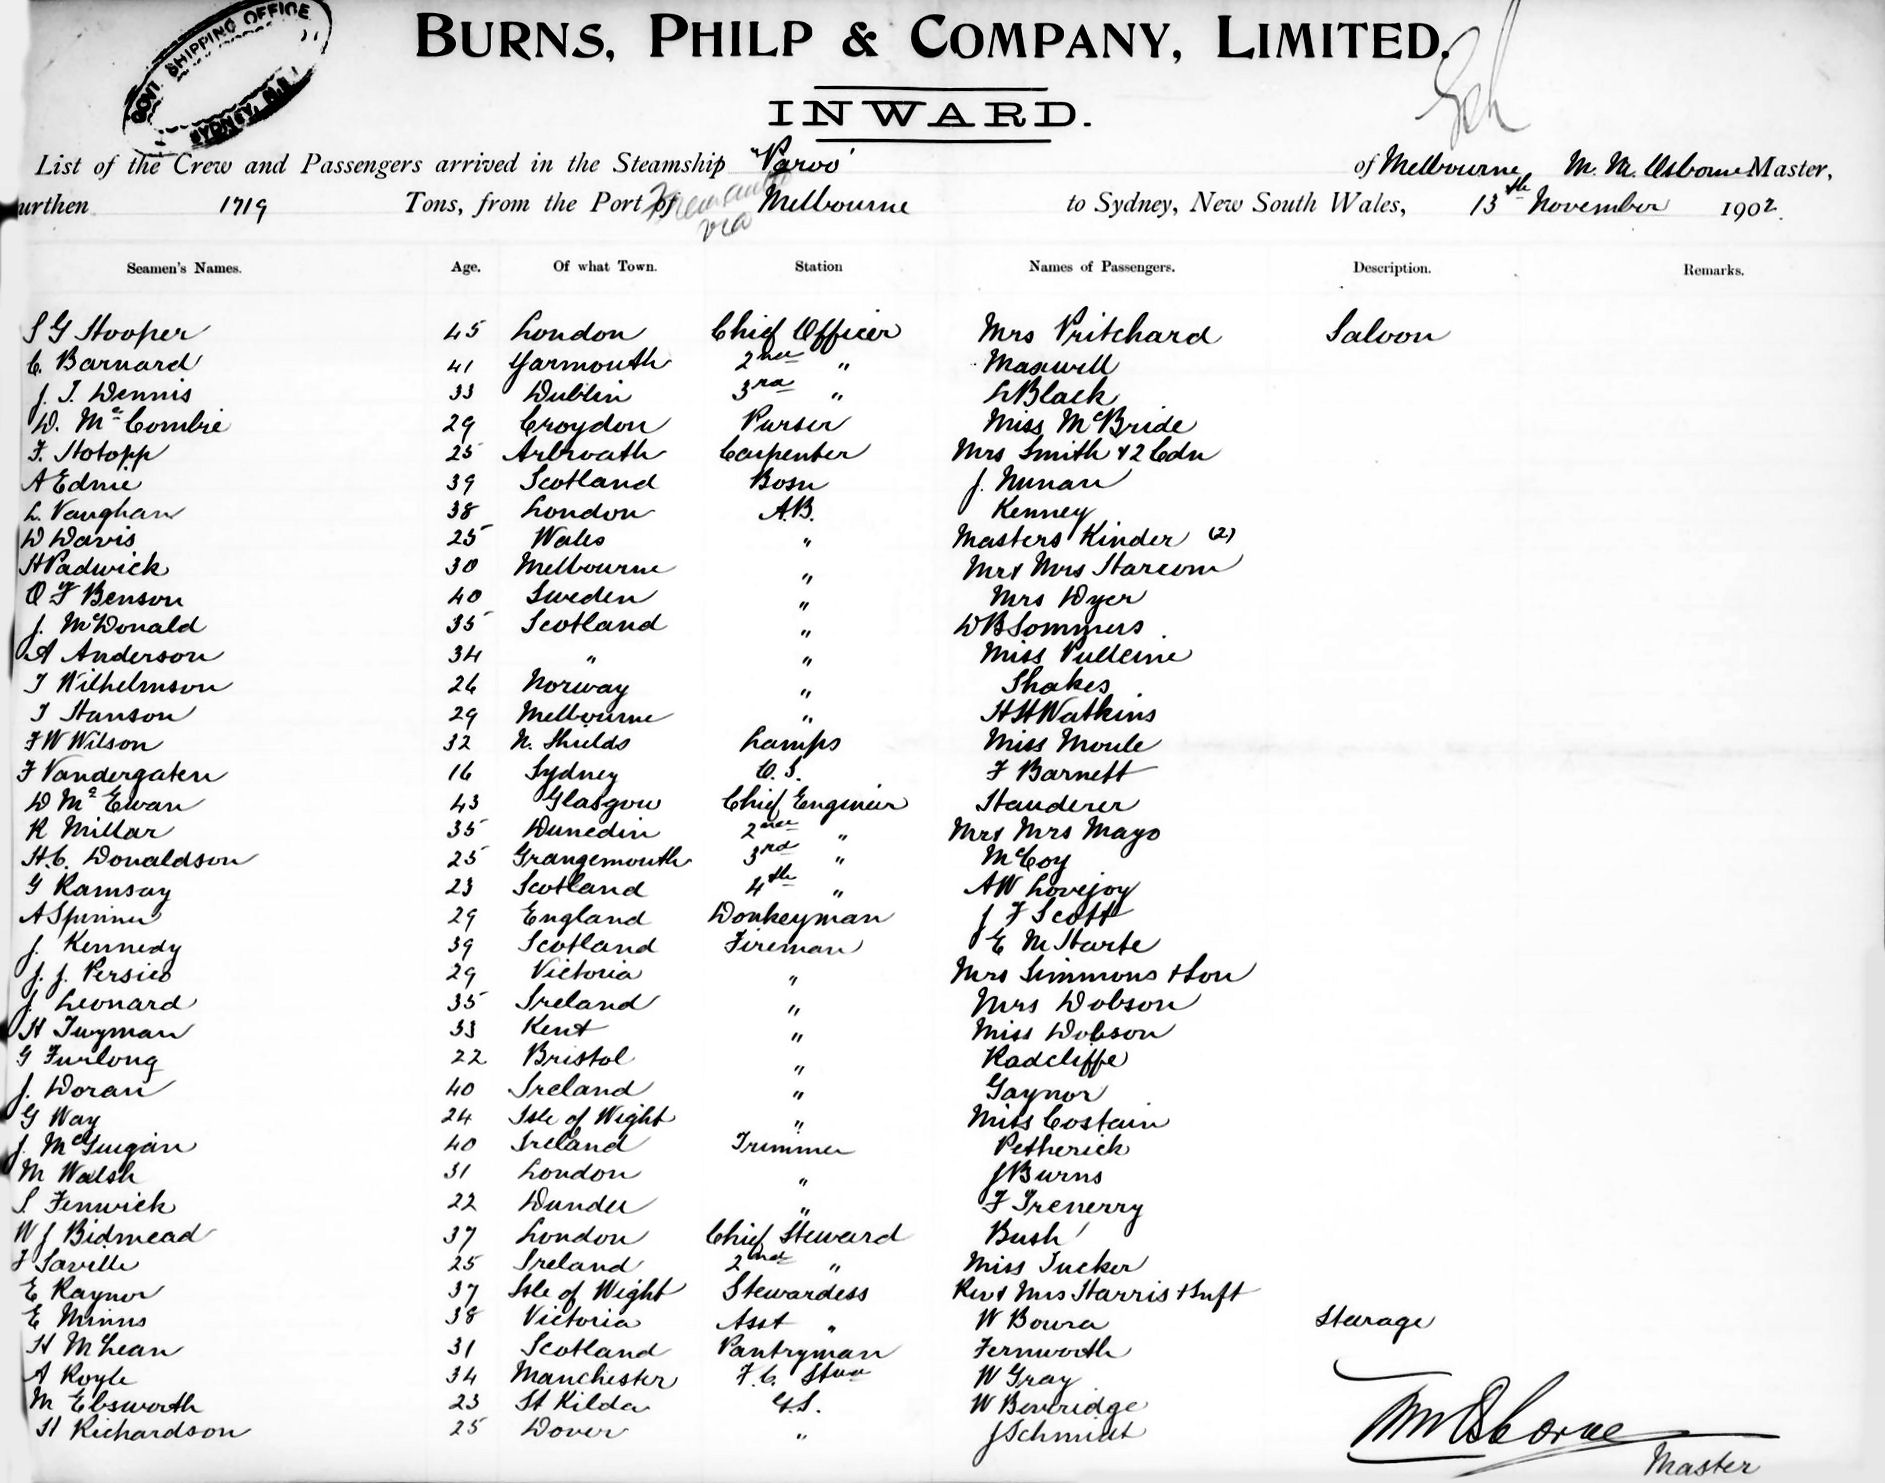 GOVT SHIPPING OFFICE
SYDNEY, N.S.W.
BURNS, PHILP & COMPANY, LIMITED.
INWARD.
List of the Crew and Passengers arrived in the Steamship "Paroo" of Melbourne M. M. Osborne Master,
urthen 1719 Tons, from the Port of Fremantle via Melbourne to Sydney, New South Wales, 13th November 1902.
Seamen's Names. Age. Of what Town. Station Names of Passengers. Description. Remarks.
S G Hooper 45 London Chief Officer Mrs Pritchard Saloon
C. Barnard 41 Yarmouth 2nd " Maxwell
J. T. Dennis 33 Dublin 3rd " L Black
D. McCombie 29 Croydon Purser Miss McBride
F. Hotopp 25 Arbroath Carpenter Mrs Smith & 2 Cdn
A Edmie 39 Scotland Bosn J. Nunan
L. Vaughan 38 London A.B. Kenney
D Davis 25 Wales " Masters Kinder (2)
H Padwick 30 Melbourne " Mr & Mrs Harcom
O F Benson 40 Sweden " Mrs Dyer
J. McDonald 35 Scotland " D B Sommers
A Anderson 34 " " Miss Pulleine
T Wilhelmson 26 Norway " Shakes
T Hanson 29 Melbourne " H H Watkins
F W Wilson 32 N. Shields Lamps Miss Moule
F Vandergaten 16 Sydney O.S. F Barnett
D McEwan 43 Glasgow Chief Engineer Handerer
R Millar 35 Dunedin 2nd " Mr & Mrs Mayo
H.C. Donaldson 25 Grangemouth 3rd " McCoy
G Ramsay 23 Scotland 4th " A W Lovejoy
A Spinner 29 England Donkeyman J F Scott
J. Kennedy 39 Scotland Fireman E M Harte
J. J. Persico 29 Victoria " Mrs Simmons & Son
J Leonard 35 Ireland " Mrs Dobson
H Twyman 33 Kent " Miss Dobson
G Furlong 22 Bristol " Radcliffe
J. Doran 40 Ireland " Gaynor
G Way 24 Isle of Wight " Miss Costain
J. McGuigan 40 Ireland Trimmer Petherick
M Walsh 31 London " J Burns
S. Fenwick 22 Dundee " F Trenerry
W J Bidmead 37 London Chief Steward Bush
F Saville 25 Ireland 2nd " Miss Tucker
E Raynor 37 Isle of Wight Stewardess Rev & Mrs Harris & Inft
E Minns 38 Victoria Asst " W Bowra Steerage
H McLean 31 Scotland Pantryman Fernworth
A Royle 34 Manchester F.C. W Gray
M Ebsworth 23 St Kilda G.S. W Beveridge
H Richardson 25 Dover " J Schmidt
M M Osborne
Master